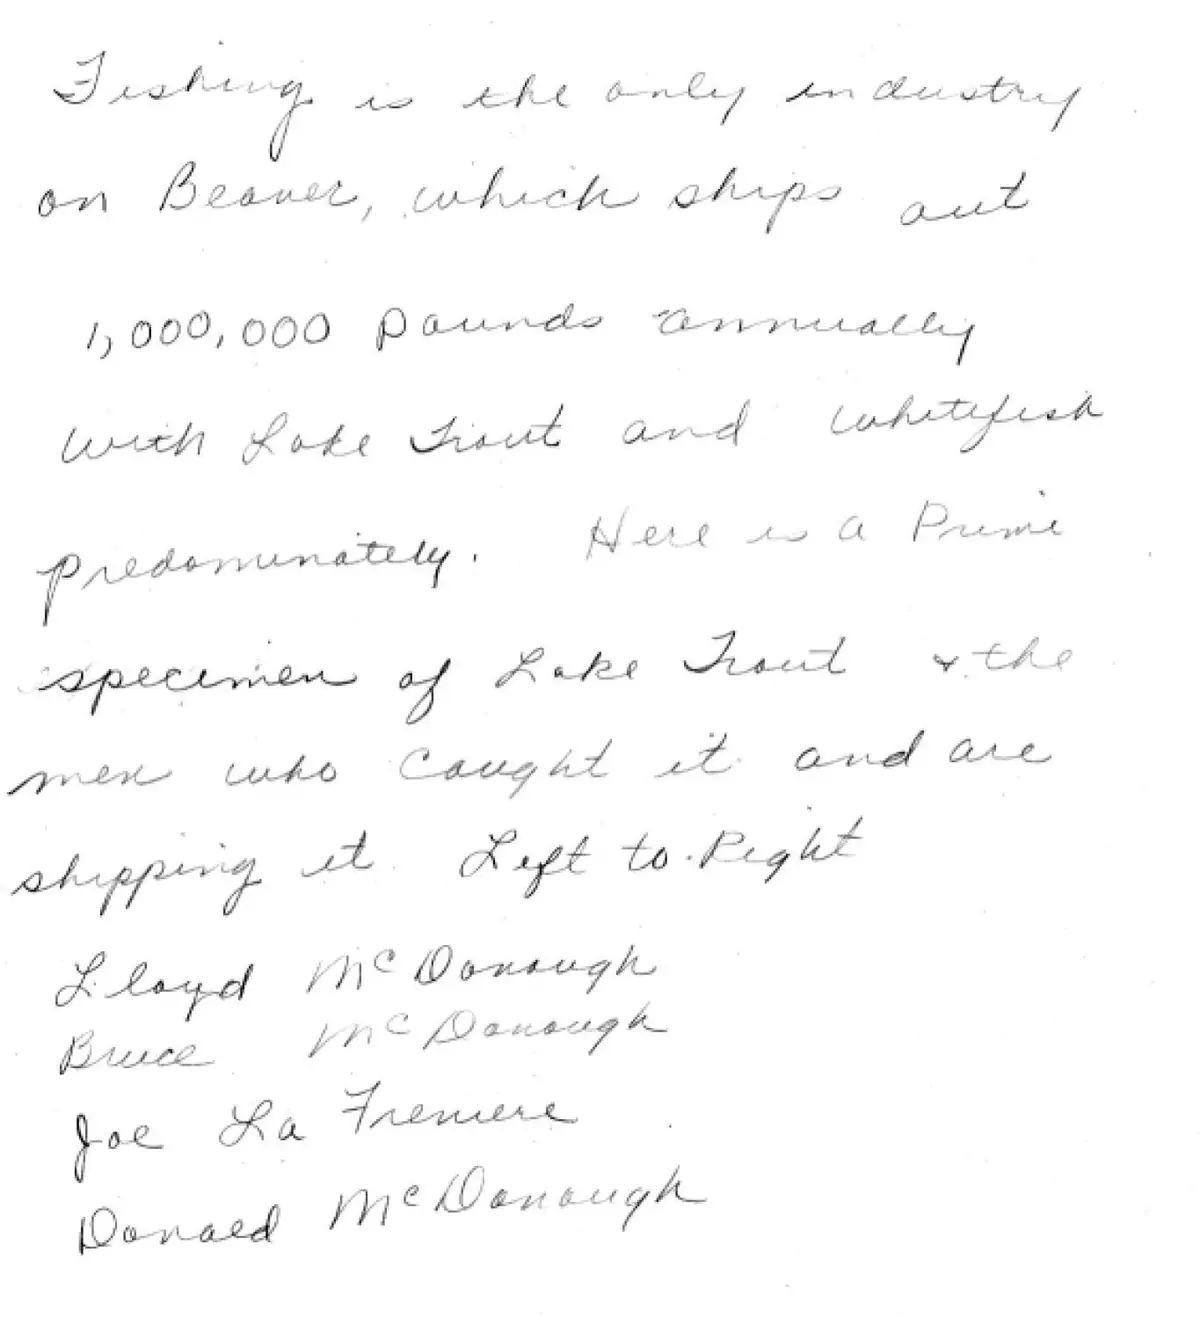 Fishing is the only industry
on Beaver, which ships out
1,000,000 pounds annually
with Lake Trout and whitefish
predominately. Here is a Prime
specimen of Lake Trout & the
men who caught it and are
shipping it. Left to Right
Lloyd McDonough
Bruce McDonough
Joe La Freniere
Donald McDonough